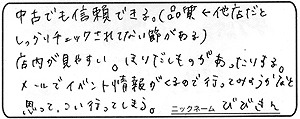 中古でも信頼できる。(品質←他店だと
しっかりチェックされてない時がある)
店内が見やすい。ほりだしものがあったりする。
メールでイベント情報がくるので行ってみようかなと
思って、つい行ってしまう。
ニックネーム びびさん